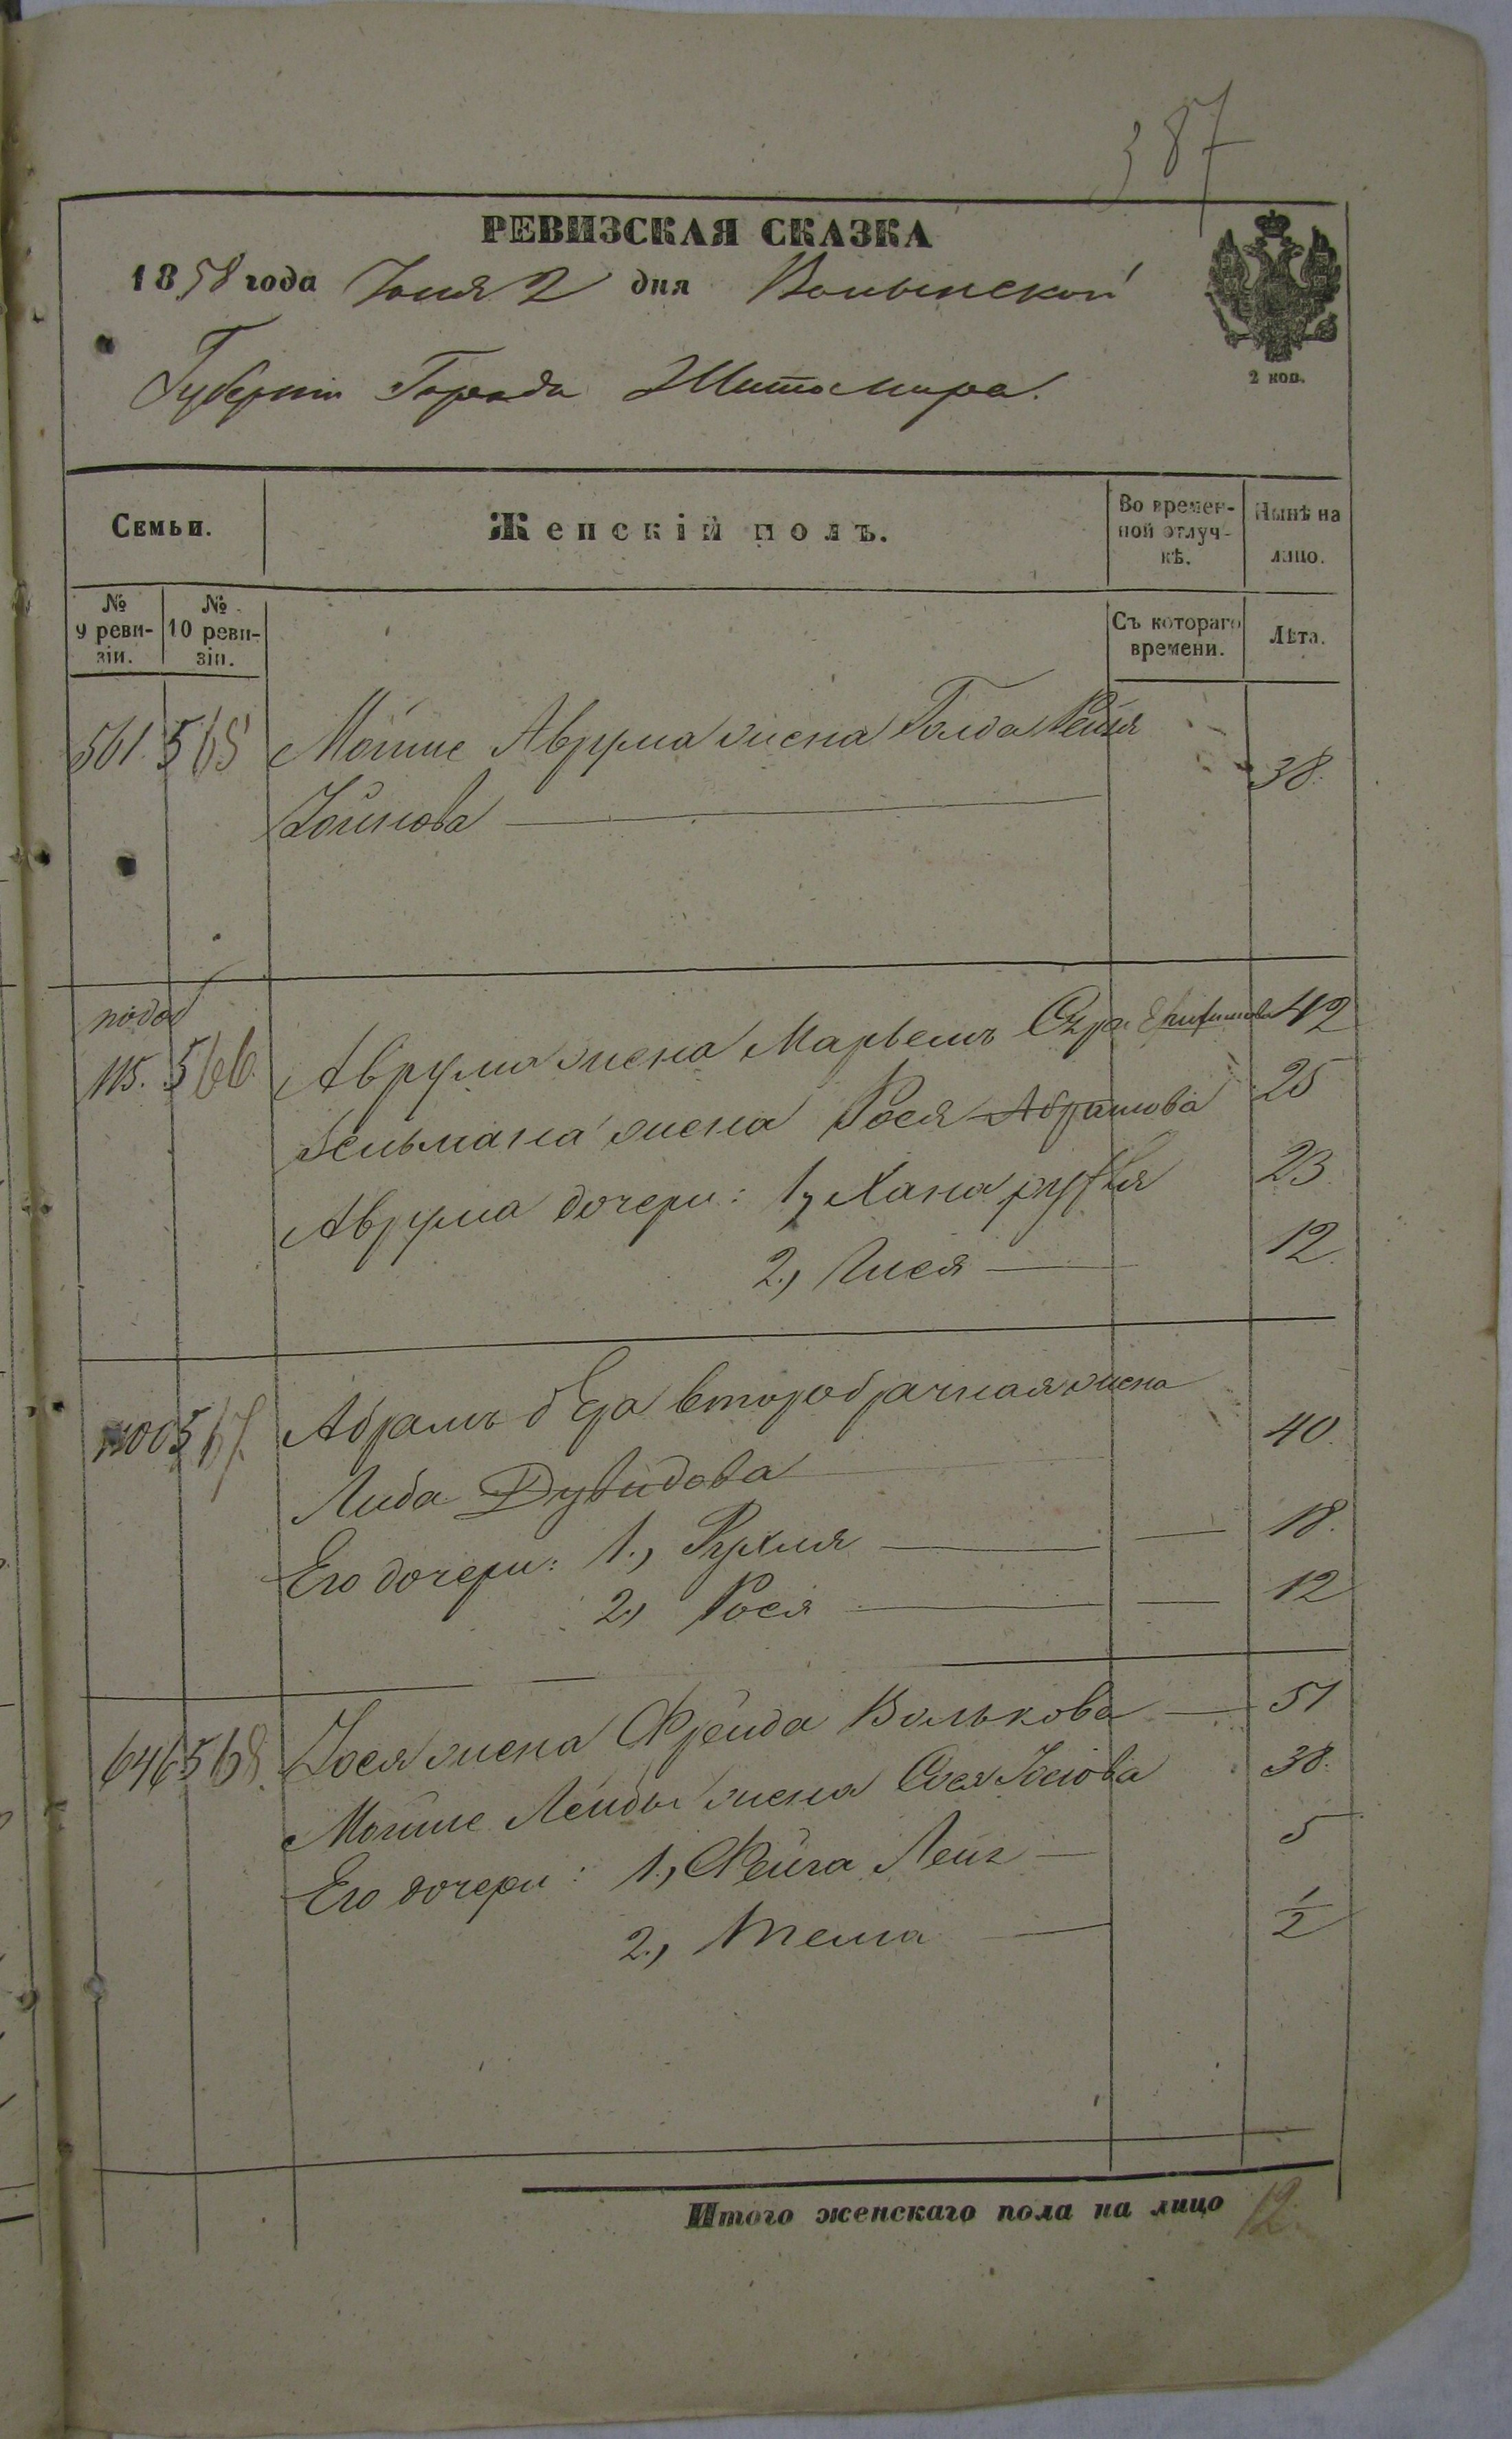 387
РЕВИЗСКАЯ СКАЗКА
1858 года Іюня 2 дня Волынской
2 коп.
Губерніи Города Житомира.
Семьи.
Женскій полъ.
Во времен-
ной отлуч-
кѣ.
Нынѣ на
лицо.
№
9 реви-
зіи.
№
10 реви-
зіи.
Съ котораго
времени.
Лѣта.
561. 565 Мошше Аврума жена Голда Рейзя
38.
Іойнова
115. 566. Аврума жена Марьемъ 42
Зельмана жена Рося Абрамова 25
Аврума дочери: 1, Хана 23
2., Лися 12.
567. Абрамъ бера второбрачная жена
40.
Либа Дувидова
Его дочери: 1., Рухля 18.
2, Рося 12
646 568. Іося жена Фрейда Волькова 51
Мошше Лейбы жена Сося Іосіова 38.
Его дочери: 1., Фейга Лея 5
2., Тема 1/2
Итого женскаго пола на лицо 12.